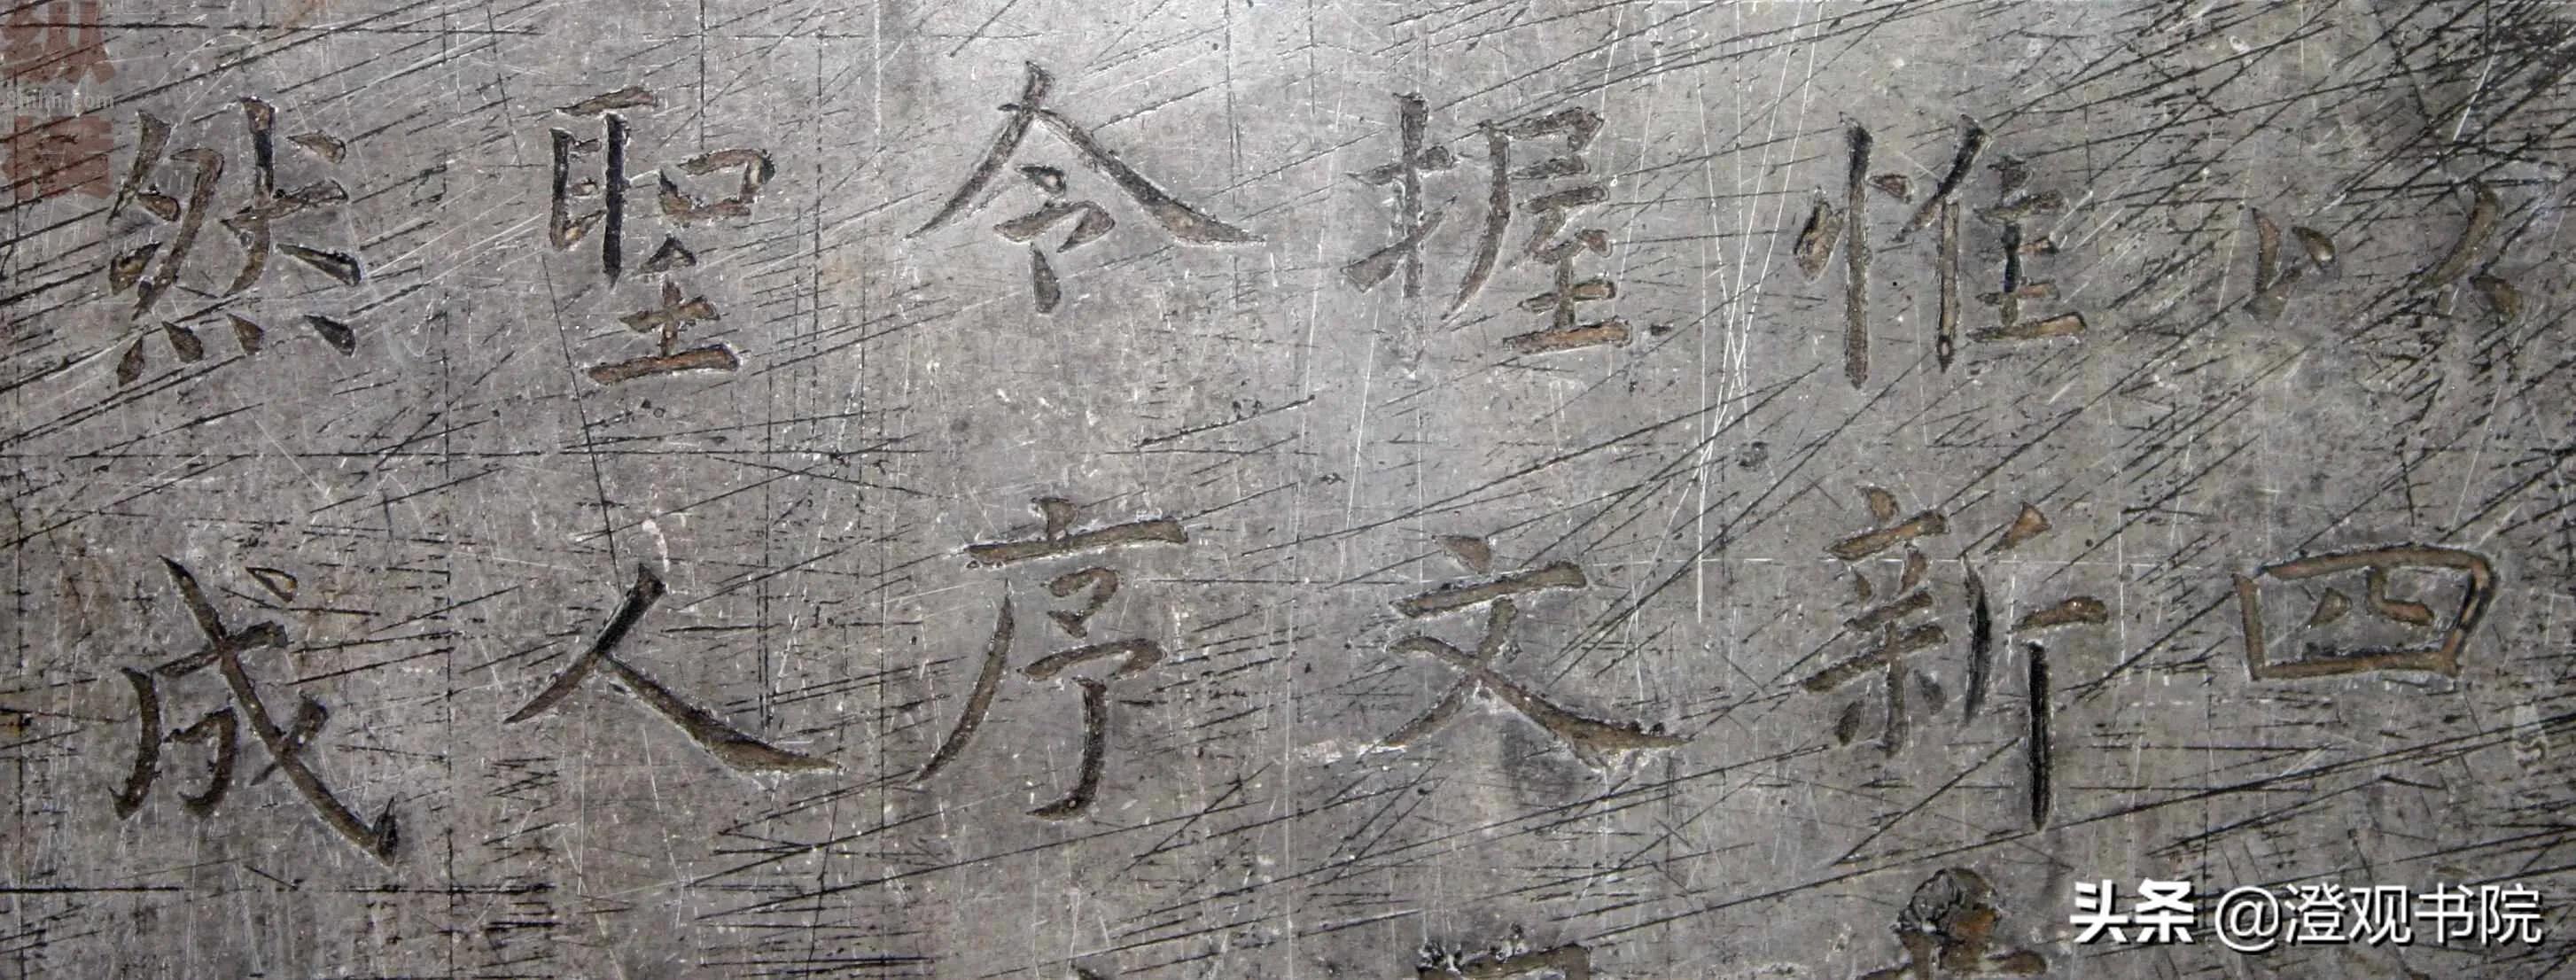 以四
惟新
握文
令序
聖人
然成
纵横
头条 @澄观书院